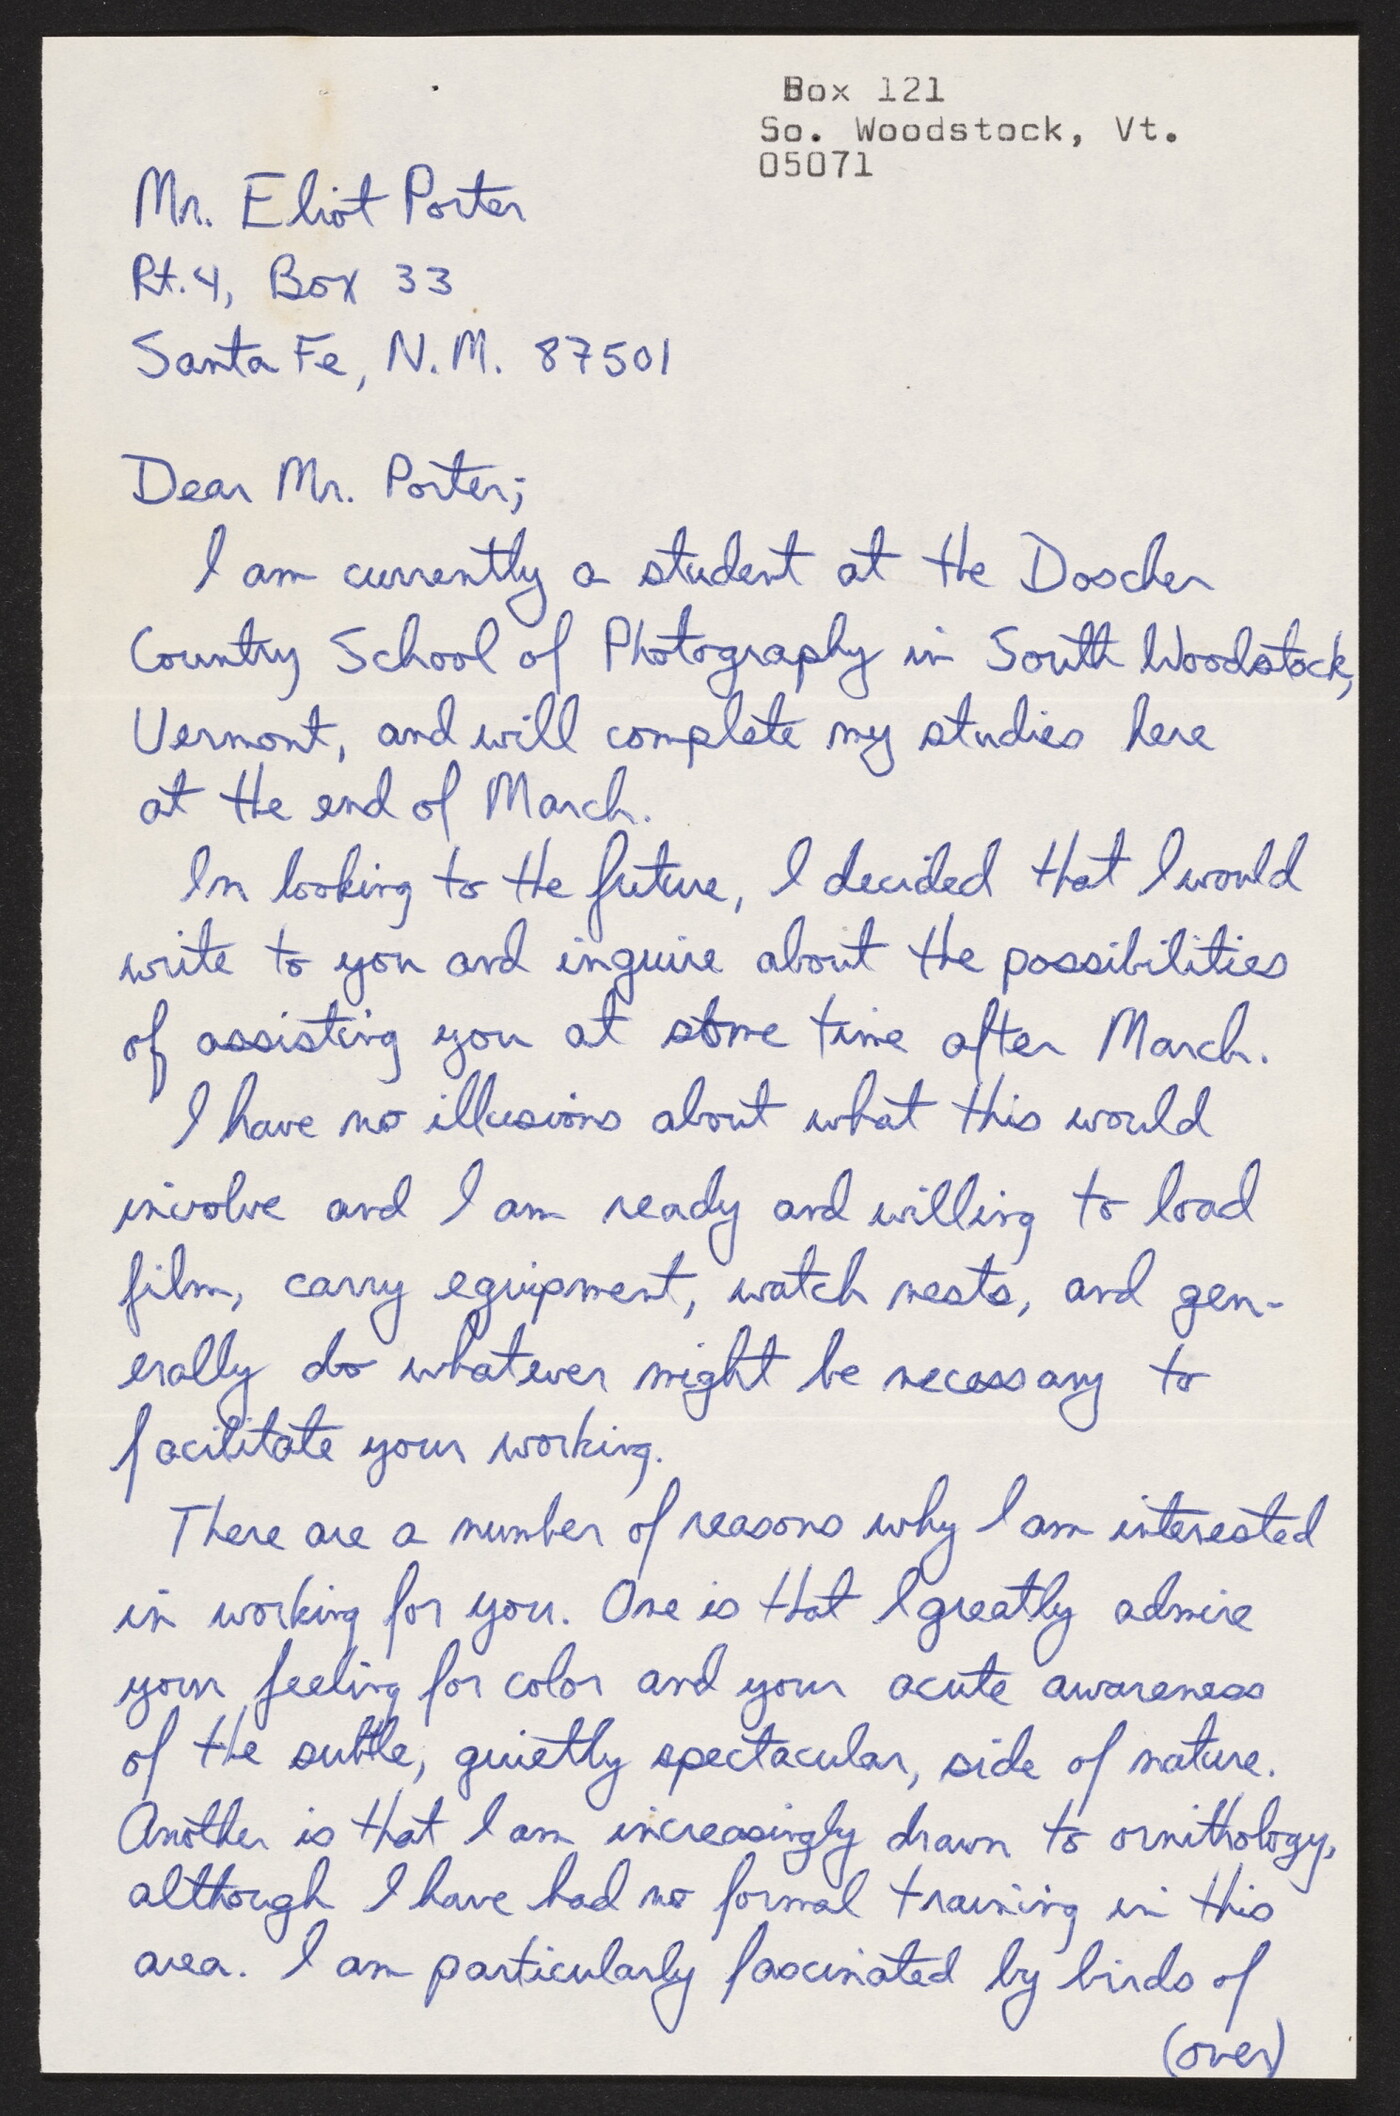 Box 121
So. Woodstock, Vt.
05071
Mr. Eliot Porter
Rt. 4, Box 33
Santa Fe, N.M. 87501
Dear Mr. Porter;
I am currently a student at the Doscher
Country School of Photography in South Woodstock,
Vermont, and will complete my studies here
at the end of March.
In looking to the future, I decided that I would
write to you and inquire about the possibilities
of assisting you at some time after March.
I have no illusions about what this would
involve and I am ready and willing to load
film, carry equipment, watch nests, and gen-
erally do whatever might be necessary to
facilitate your working.
There are a number of reasons why I am interested
in working for you. One is that I greatly admire
your feeling for color and your acute awareness
of the subtle, quietly spectacular, side of nature.
Another is that I am increasingly drawn to ornithology,
although I have had no formal training in this
area. I am particularly fascinated by birds of
(over)